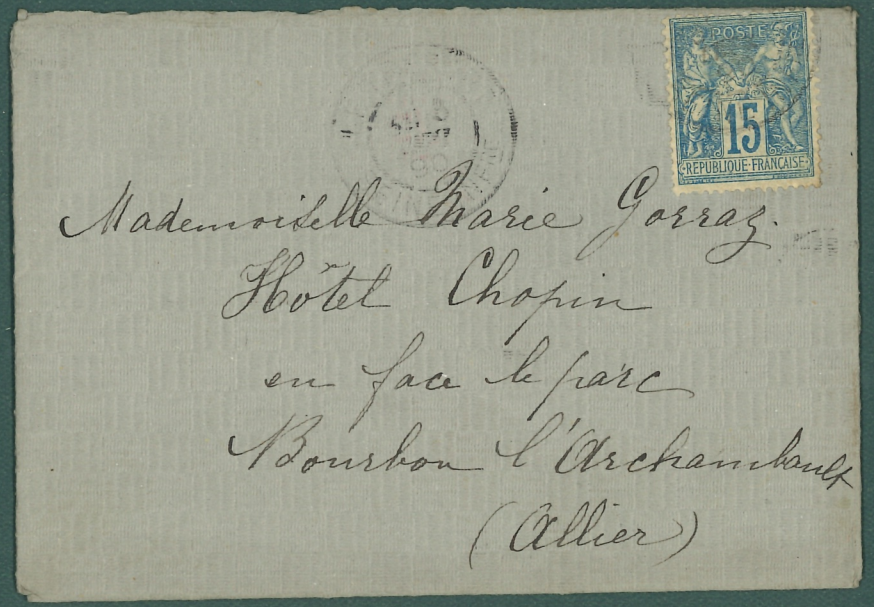 POSTE
15
RÉPUBLIQUE FRANÇAISE
Mademoiselle Marie Gorraz.
Hôtel Chopin
en face le parc
Bourbon l'Archambault
(Allier)